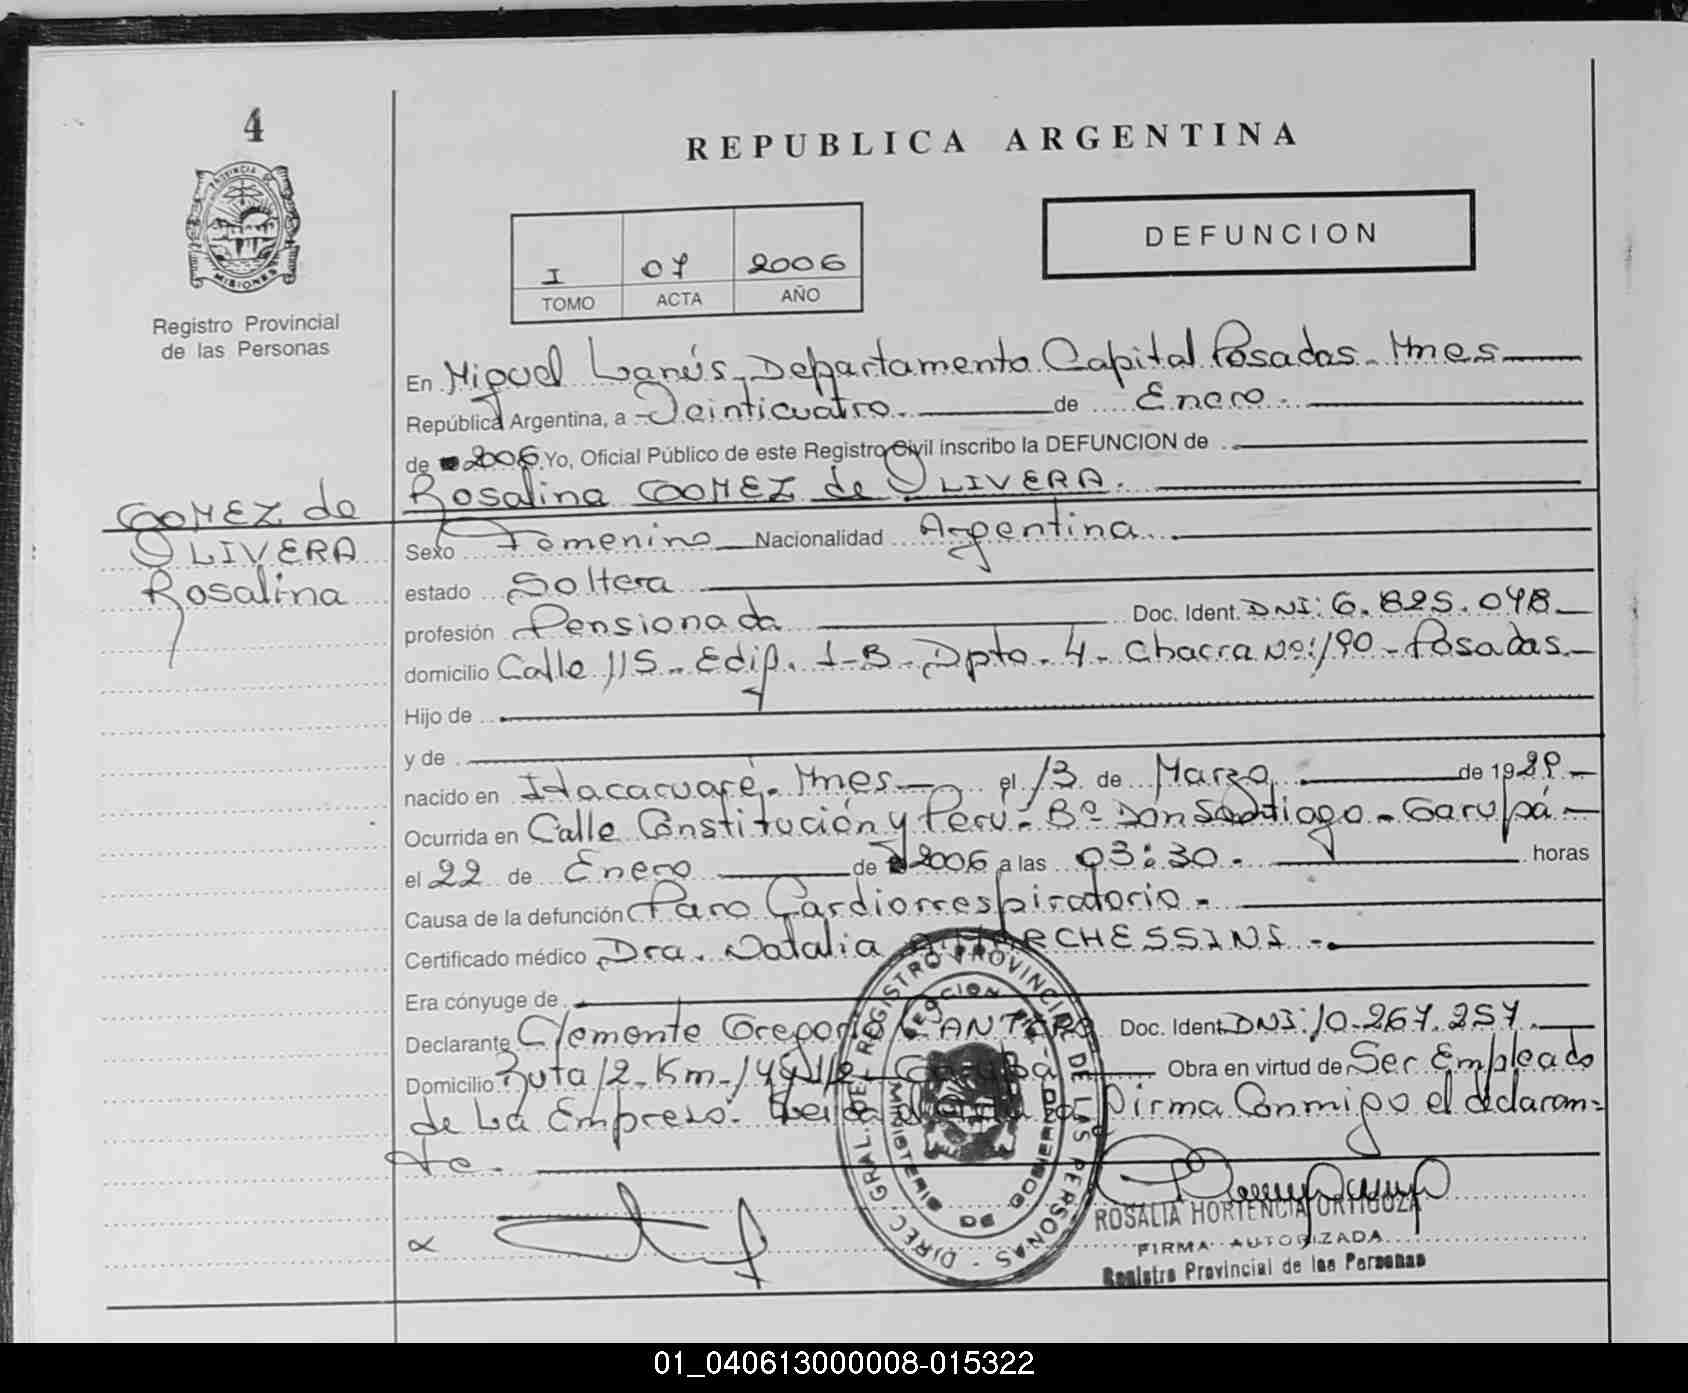 4
PROVINCIA DE
MISIONES
Registro Provincial
de las Personas
REPUBLICA ARGENTINA
I 07 2006
TOMO ACTA AÑO
DEFUNCION
GOMEZ de
OLIVERA
Rosalina
En Miguel Lanús, Departamento Capital Posadas - Mnes
República Argentina, a Veinticuatro. de Enero.
de 2006. Yo, Oficial Público de este Registro Civil inscribo la DEFUNCION de
Rosalina GOMEZ de OLIVERA.
Sexo Femenino Nacionalidad Argentina
estado Soltera
profesión Pensionada Doc. Ident. DNI: 6.825.048
domicilio Calle 115 - Edif. 1-B - Dpto. 4 - Chacra Nº: 190 - Posadas.
Hijo de
y de
nacido en Itacaruaré - Mnes el 13 de Marzo de 1929
Ocurrida en Calle Constitución y Perú - Bº Don Santiago - Garupá -
el 22 de Enero de 2006 a las 03:30 - horas
Causa de la defunción Paro Cardiorrespiratorio -
Certificado médico Dra. Natalia MARCHESSINI -
Era cónyuge de
Declarante Clemente Gregorio CANTERO Doc. Ident. DNI: 10.267.257
Domicilio Ruta 12 - Km - Garupá Obra en virtud de Ser Empleado
de La Empresa. Leída el acta la firma Conmigo el declaran=
te.
DIREC. GRAL. DEL REGISTRO PROVINCIAL DE LAS PERSONAS
MINISTERIO DE GOBIERNO
ROSALIA HORTENCIA ORTIGOZA
FIRMA AUTORIZADA
Registro Provincial de las Personas
01_040613000008-015322